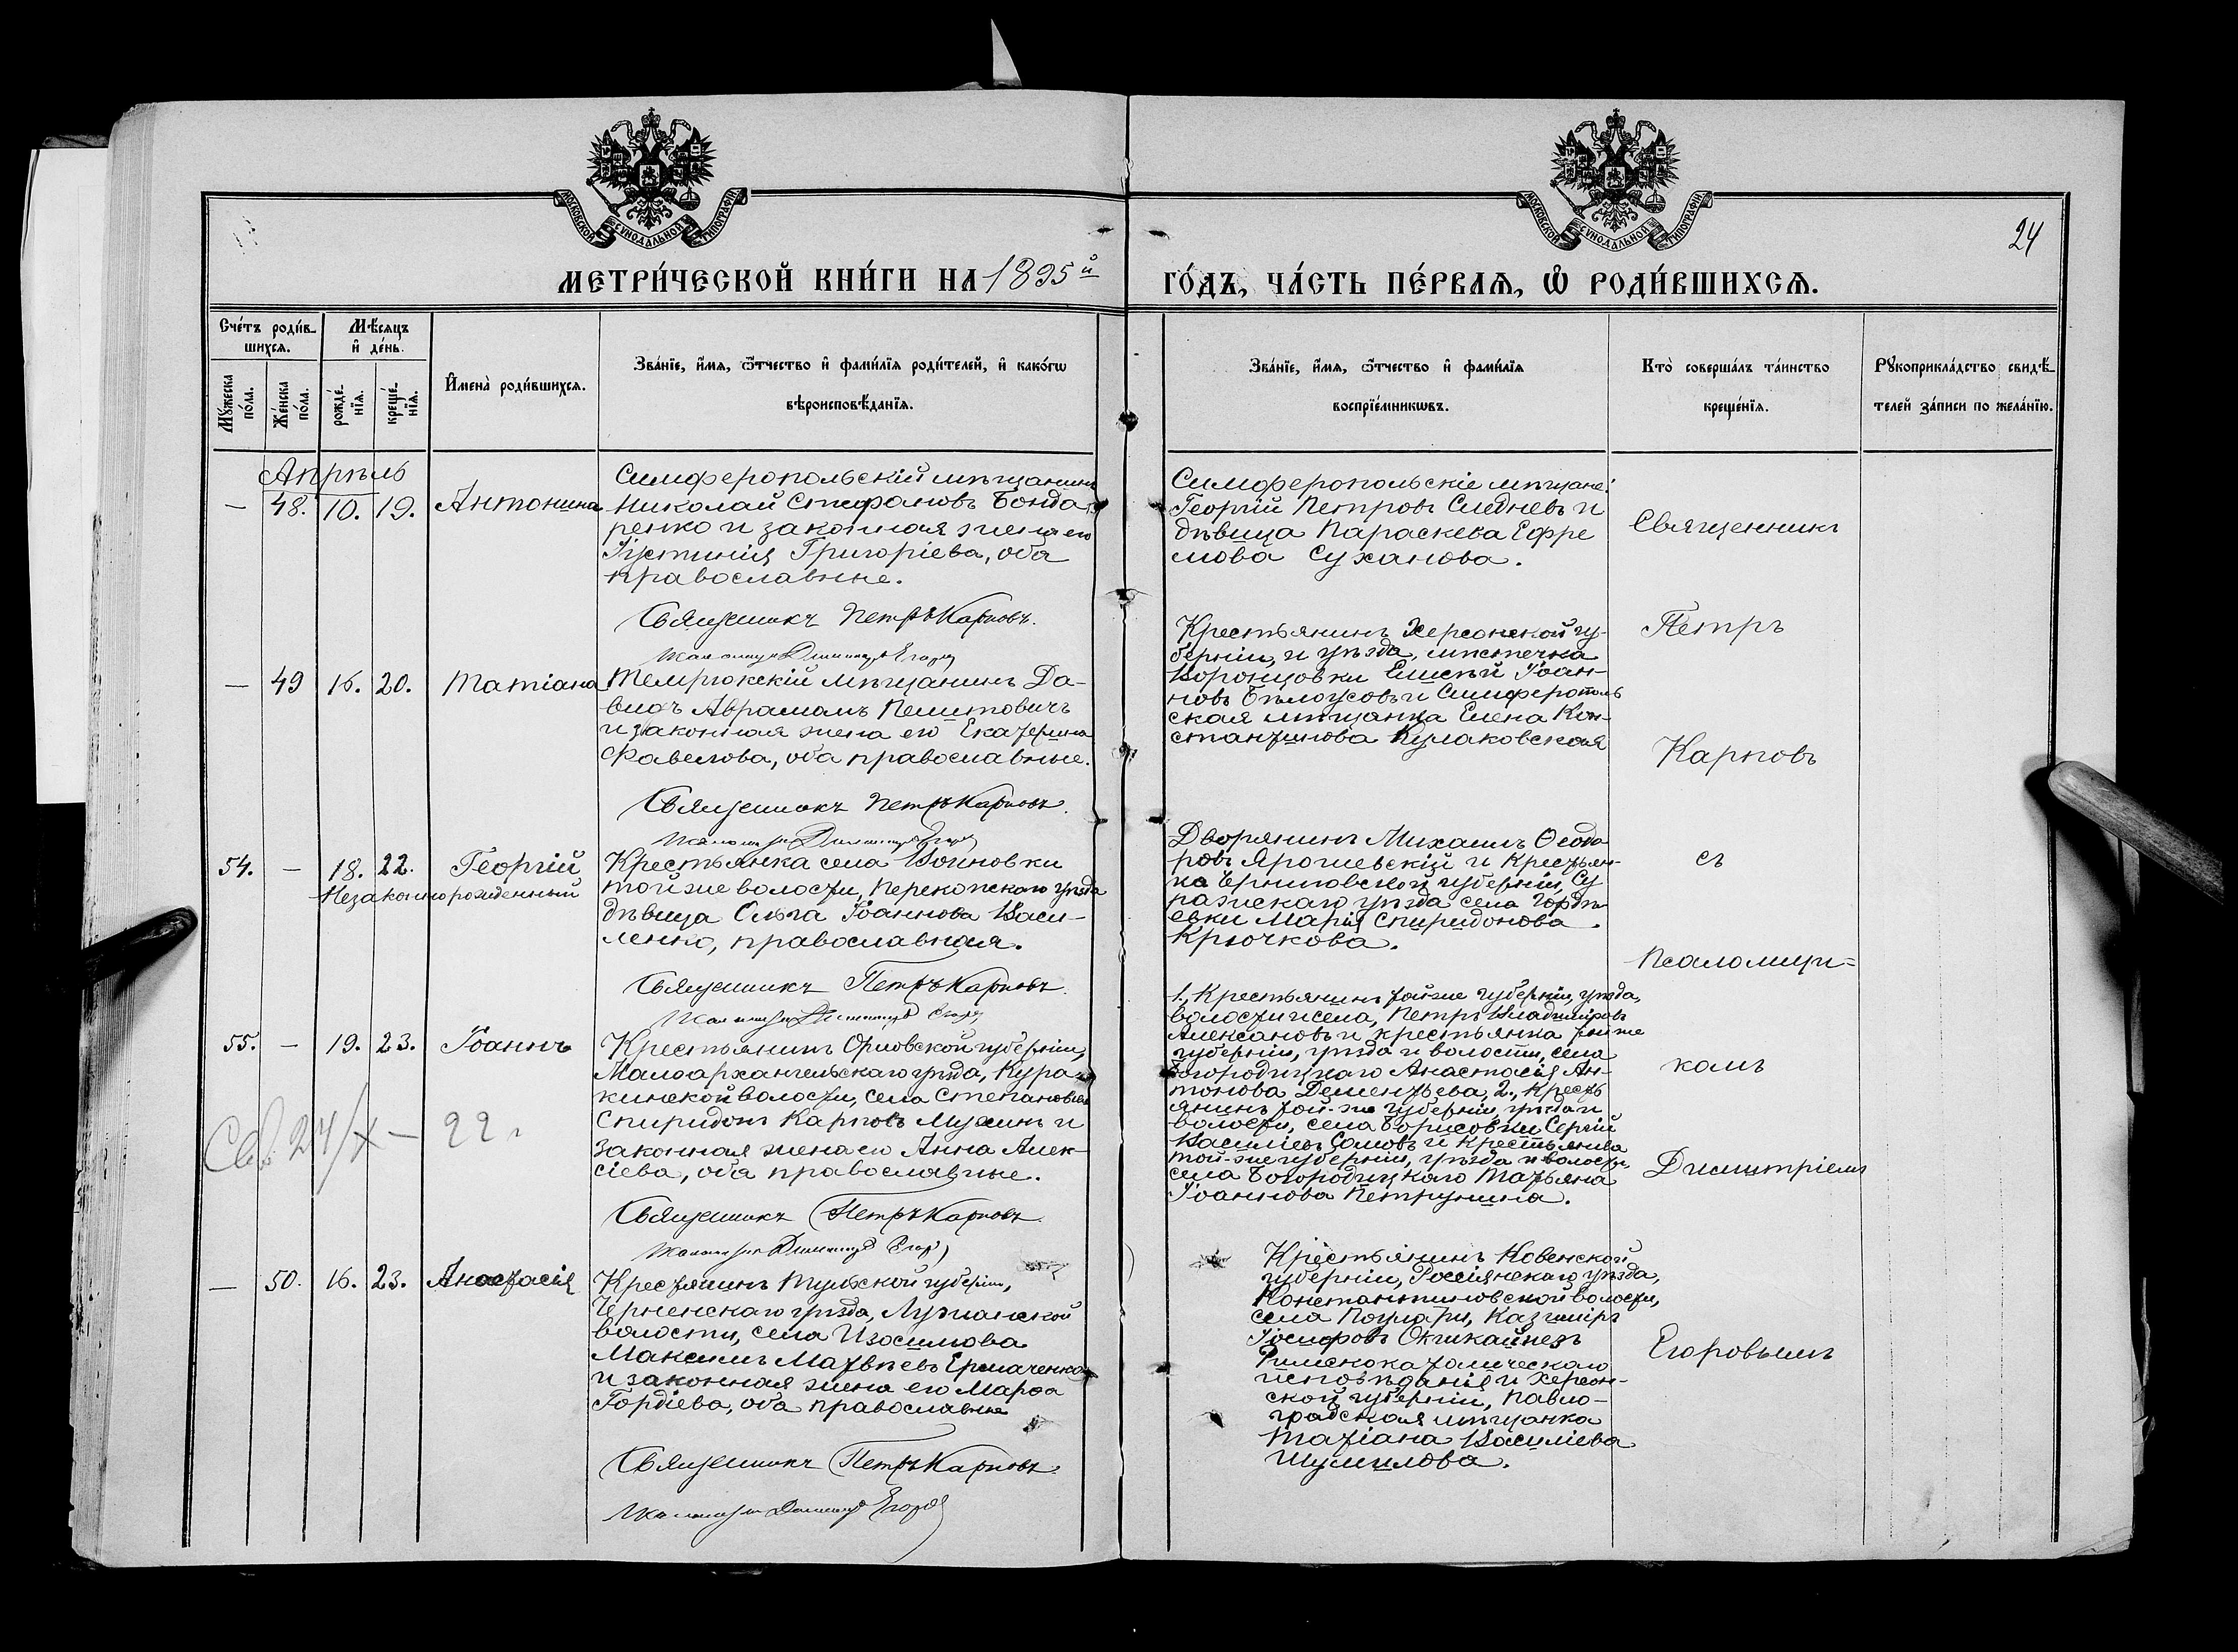 МОСКОВСКОЙ СУНОДАЛЬНОЙ ТИПОГРАФІИ
МОСКОВСКОЙ СУНОДАЛЬНОЙ ТИПОГРАФІИ
24
МЕТРИ́ЧЕСКОЙ КНИ́ГИ НА 1895й ГО́ДЪ, ЧА́СТЬ ПЕ́РВАѦ, Ѡ РОДИ́ВШИХСѦ.
Сче́тъ роди́в-
шихсѧ.
Мѣ́сѧцъ
и де́нь.
Мꙋ́жеска по́ла.
Же́нска по́ла.
рожде́-
нїѧ.
креще́-
нїѧ.
И҆мена̀ роди́вшихсѧ.
Зва́нїе, и҆́мѧ, ѻ҆́тчество и҆ фами́лїѧ роди́телей, и҆ како́гѡ
вѣроисповѣ́данїѧ.
Зва́нїе, и҆́мѧ, ѻ҆́тчество и҆ фами́лїѧ
воспрїе́мникѡвъ.
Кто̀ соверша́лъ та́инство
креще́нїѧ.
Рꙋкоприкла́дство свидѣ́-
телей за́писи по жела́нїю.
Апрѣль
— 48. 10. 19. Антонина
Симферопольскій мѣщанинъ
Николай Стефановъ Бонда-
ренко и законная жена его
Іустинія Григоріева, оба
православные.
Священникъ Петръ Карповъ.
Симферопольскіе мѣщане:
Георгій Петровъ Следневъ и
дѣвица Параскева Ефре
мова Суханова.
— 49 16. 20. Татіана
Темрюкскій мѣщанинъ Да-
видъ Авраамъ
и законная жена его Екатерина
Павелова, оба православные.
Священникъ Петръ Карповъ.
Крестьянинъ Херсонской гу-
берніи, и уѣзда, мѣстечка
Воронцовки Елисѣй Іоан-
новъ Бѣлоусовъ и Симферополь
ская мѣщанка Елена Кон-
стантинова Кулаковская
54. — 18. 22. Георгій
Незаконнорожденный
Крестьянка села Воиновки
той же волости, Перекопскаго уѣзда
дѣвица Ольга Іоаннова Васи-
ленко, православная.
Священникъ Петръ Карповъ
Дворянинъ Михаилъ Ѳеодо
ровъ Ярошевскій и крестьян-
ка Черниговской губерніи, Су
ражскаго уѣзда села Гордѣ
евки Марія Спиридонова
Крючкова.
55. — 19. 23. Іоаннъ
Крестьянинъ Орловской губерніи,
Малоархангельскаго уѣзда, Кура-
кинской волости, села Степановки
Спиридонъ Карповъ Мухинъ и
законная жена его Анна Алек-
сіева, оба православные.
Священникъ Петръ Карповъ
24/X — 22 г
1., Крестьянинъ той же губерніи, уѣзда,
волости и села, Петръ Владиміровъ
Алексановъ и крестьянка той же
губерніи, уѣзда и волости, села
Богородицкаго Анастасія Ан-
тонова Дементьева, 2., Кресть
янинъ той-же губерніи, уѣзда и
волости, села Борисовки Сергій
Василіевъ Сомовъ и крестьянка
той-же губерніи, уѣзда и волости,
села Богородицкаго Татьяна
Іоаннова Петрунина.
— 50. 16. 23. Анастасія
Крестянинъ Тульской губерніи,
Черненскаго уѣзда,
волости, села Изосимова
Максимъ Матвѣевъ Ермаченковъ
и законная жена его Марѳа
Гордіева, оба православные
Священникъ Петръ Карповъ
Крестьянинъ Ковенской
губерніи, Россіянскаго уѣзда,
Константиновской волости,
села Казиміръ
Іосифовъ
Римскокатолическаго
исповѣданія и Херсон-
ской губерніи, Павло-
градская мѣщанка
Татіана Василіева
Шумилова.
Священникъ
Петръ
Карповъ
съ
Псаломщи=
комъ
Димитріемъ
Егоровымъ